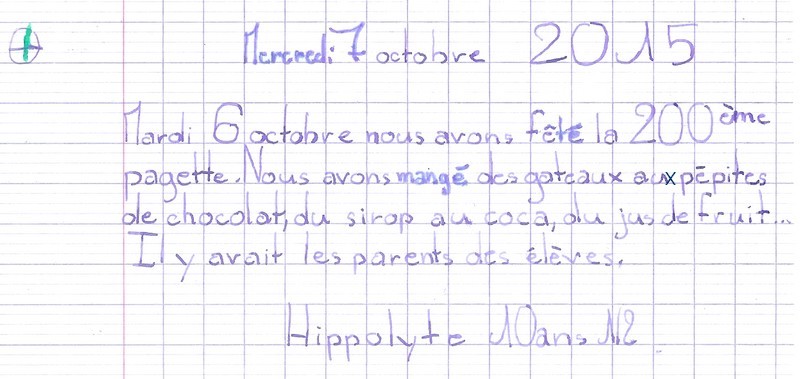 Mercredi 7 octobre 2015
Mardi 6 octobre nous avons fêté la 200ème
pagette. Nous avons mangé des gateaux aux pépites
de chocolat, du sirop au coca, du jus de fruit...
Il y avait les parents des élèves.
Hippolyte 10ans N2